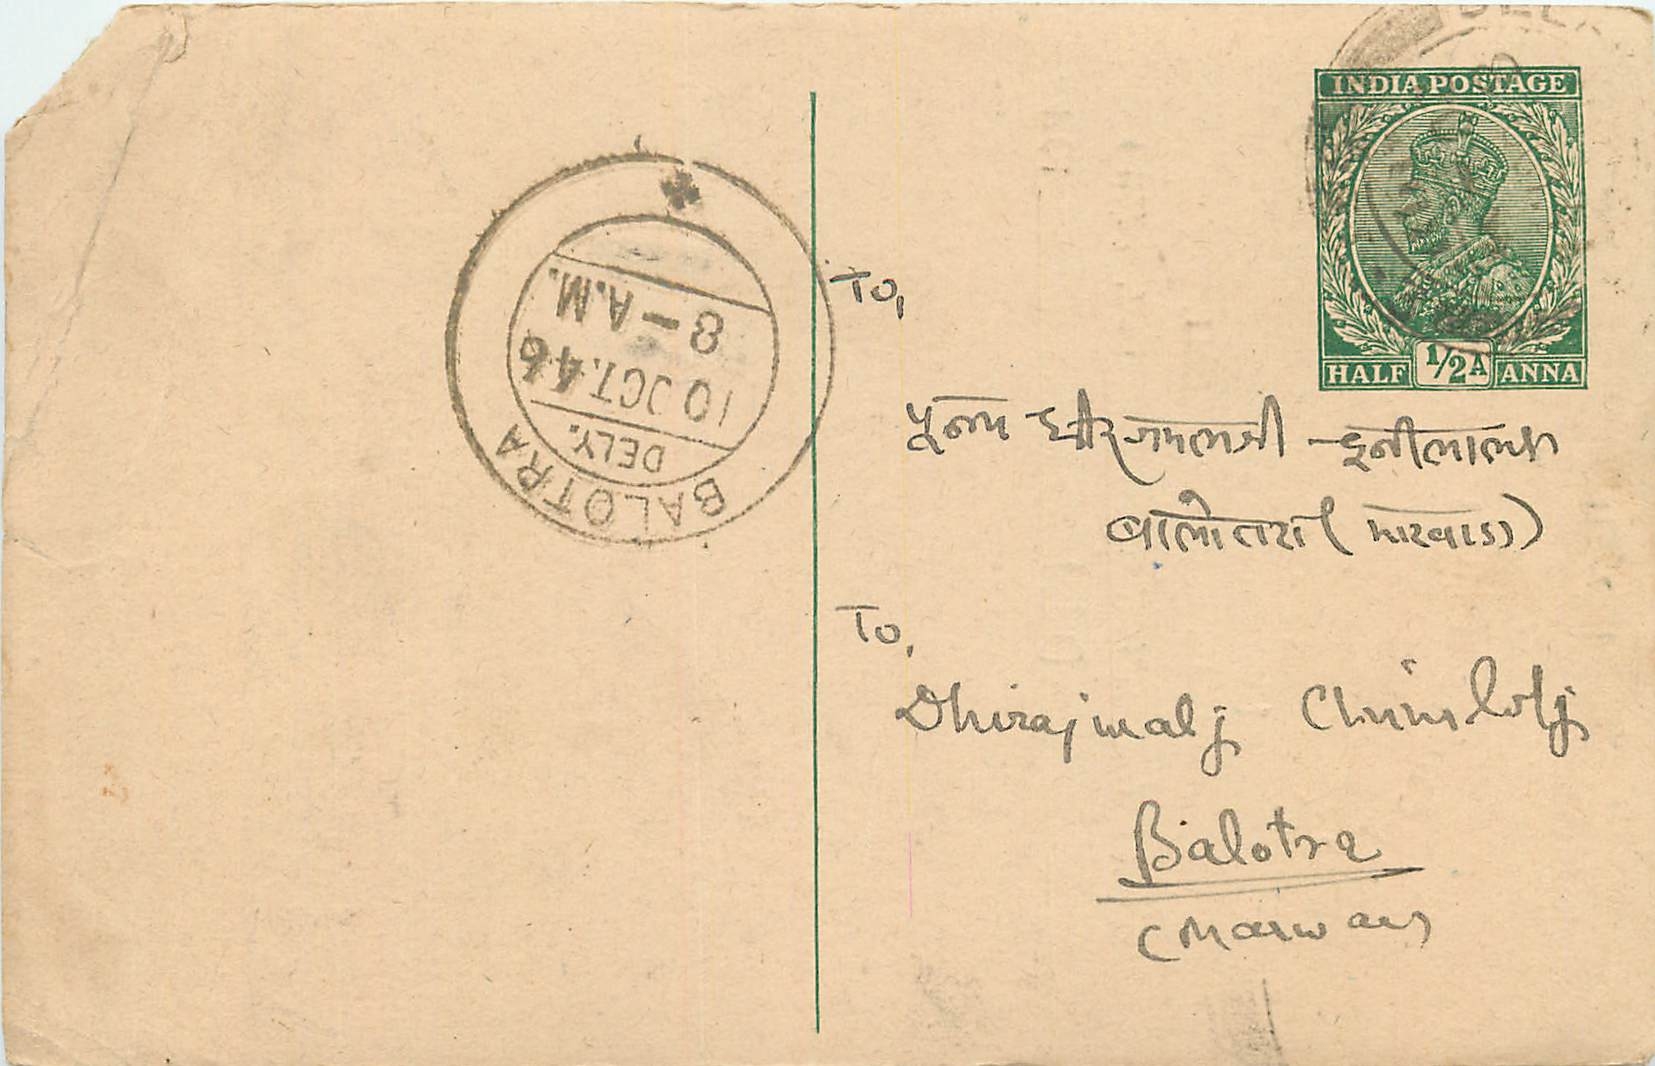 INDIA POSTAGE
HALF 1/2A ANNA
BALOTRA
DELY.
10 OCT.46
8-A.M.
To,
पूज्य धीरजमलजी चुनीलालजी
बालोतरा (मारवाड)
To,
Dhirajmalj Chunilalj
Balotra
(Marwar)